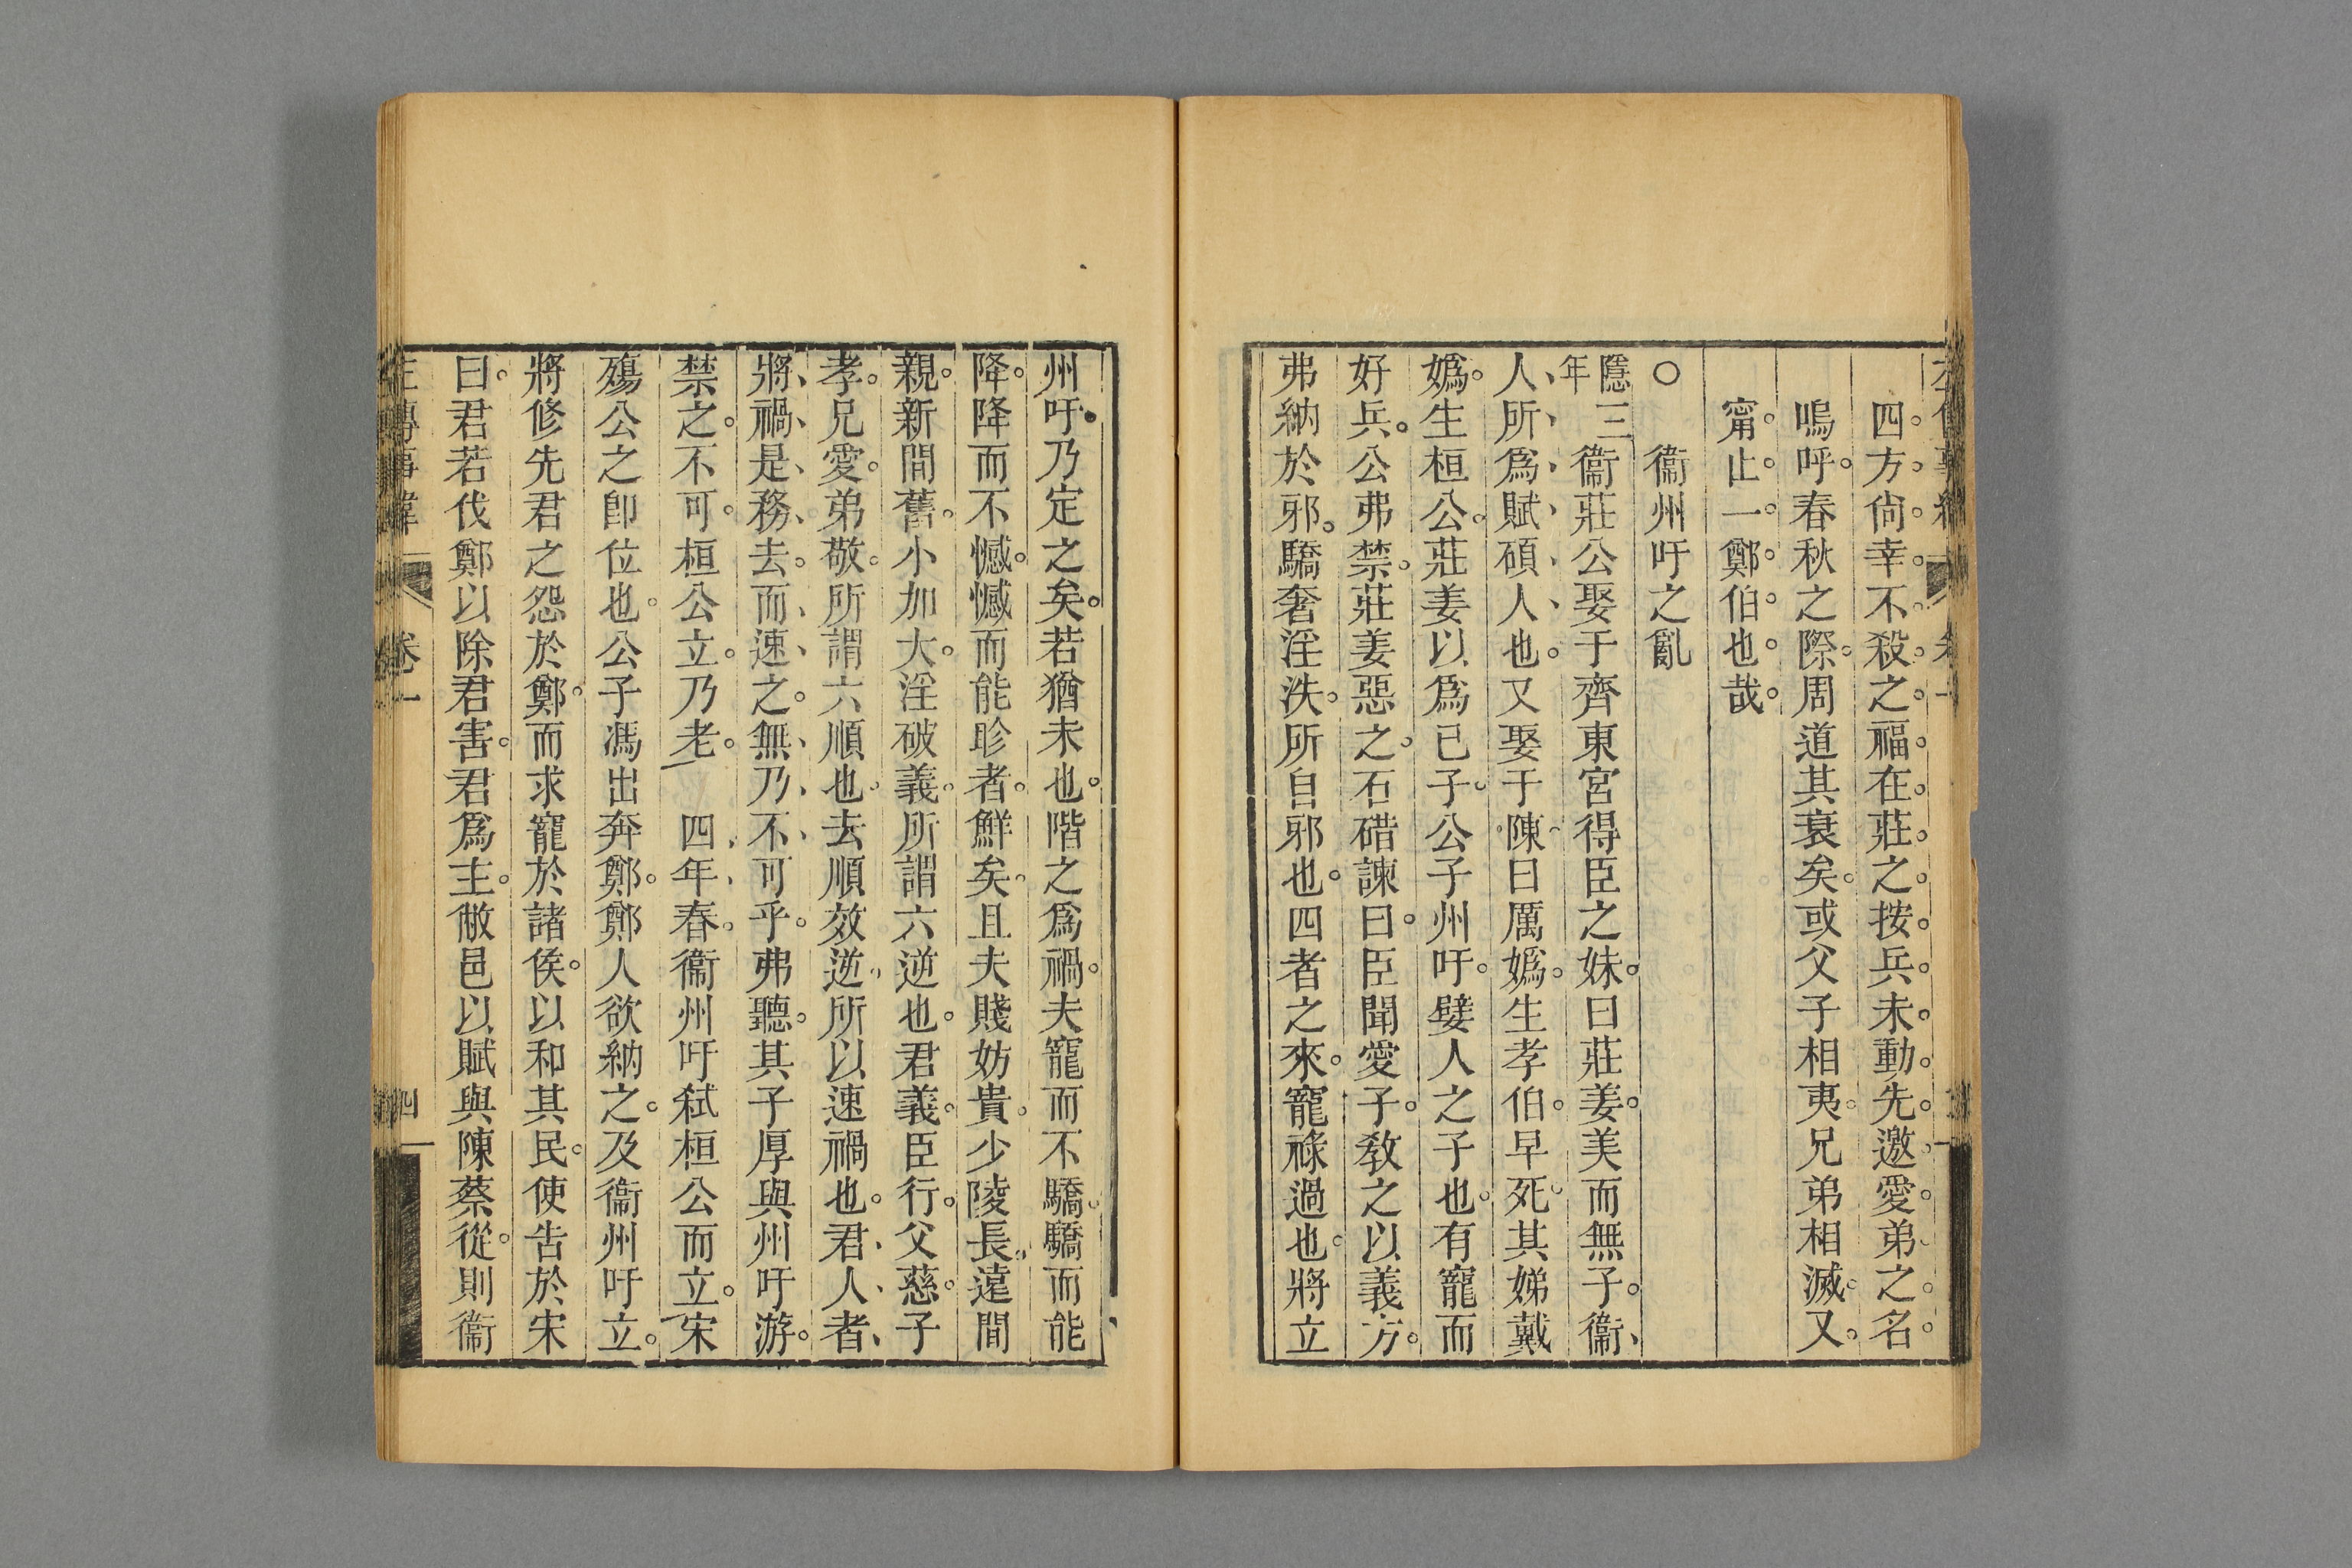 四方尙幸不殺之福在莊之按兵未動先邀愛弟之名
嗚呼春秋之際周道其衰矣或父子相夷兄弟相滅又
甯止一鄭伯也哉
○　衞州吁之亂
隱三年衞莊公娶于齊東宮得臣之妹曰莊姜美而無子衞
人所爲賦碩人也又娶于陳曰厲嬀生孝伯早死其娣戴
嬀生桓公莊姜以爲己子公子州吁嬖人之子也有寵而
好兵公弗禁莊姜惡之石碏諫曰臣聞愛子教之以義方
弗納於邪驕奢淫泆所自邪也四者之來寵祿過也將立
州吁乃定之矣若猶未也階之爲禍夫寵而不驕驕而能
降降而不憾憾而能眕者鮮矣且夫賤妨貴少陵長遠間
親新間舊小加大淫破義所謂六逆也君義臣行父慈子
孝兄愛弟敬所謂六順也去順效逆所以速禍也君人者
將禍是務去而速之無乃不可乎弗聽其子厚與州吁游
禁之不可桓公立乃老　四年春衞州吁弒桓公而立宋
殤公之卽位也公子馮出奔鄭鄭人欲納之及衞州吁立
將修先君之怨於鄭而求寵於諸侯以和其民使告於宋
曰君若伐鄭以除君害君爲主敝邑以賦與陳蔡從則衞
左傳事緯　卷一　四